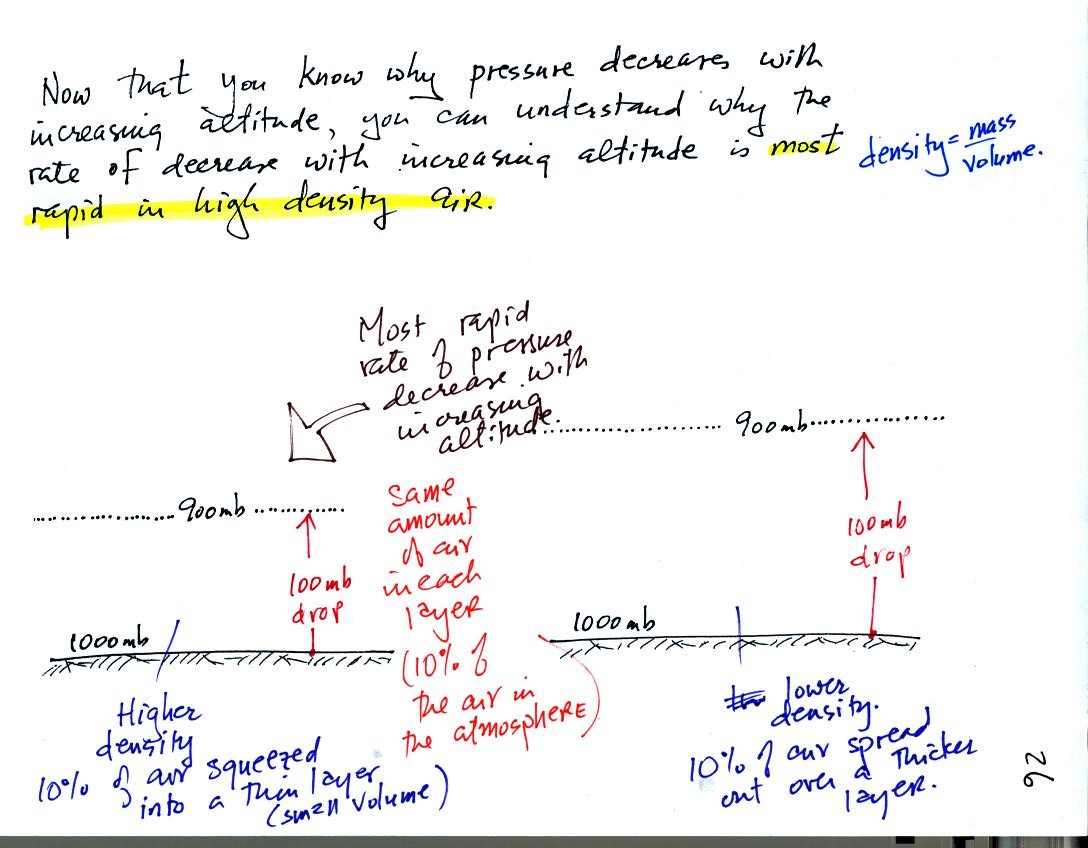 Now that you know why pressure decreases with
increasing altitude, you can understand why the
rate of decrease with increasing altitude is most
rapid in high density air.
density = mass
volume.
Most rapid
rate of pressure
decrease with
increasing
altitude.
900mb
900mb
same
amount
of air
in each
layer
(10% of
the air in
the atmosphere)
100mb
drop
100mb
drop
1000mb
1000mb
Higher
density
10% of air squeezed
into a thin layer
(small volume)
lower
density.
10% of air spread
out over a thicker
layer.
26